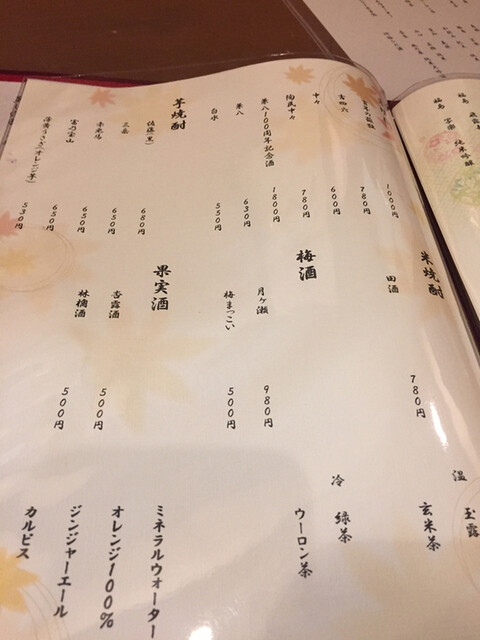 1000円
780円
吉四六
600円
十々
780円
陶眠十々
1800円
兼八100周年記念酒
630円
兼八
550円
白水
芋焼酎
佐藤(黒)
680円
三岳
650円
赤兎馬
650円
富乃宝山
650円
(オレンジ芋)
530円
米焼酎
田酒
780円
梅酒
月ヶ瀬
980円
梅まっこい
500円
果実酒
杏露酒
500円
林檎酒
500円
温
玉露
玄米茶
冷
緑茶
ウーロン茶
ミネラルウォーター
オレンジ100%
ジンジャーエール
カルピス
福島
福島
純米吟醸